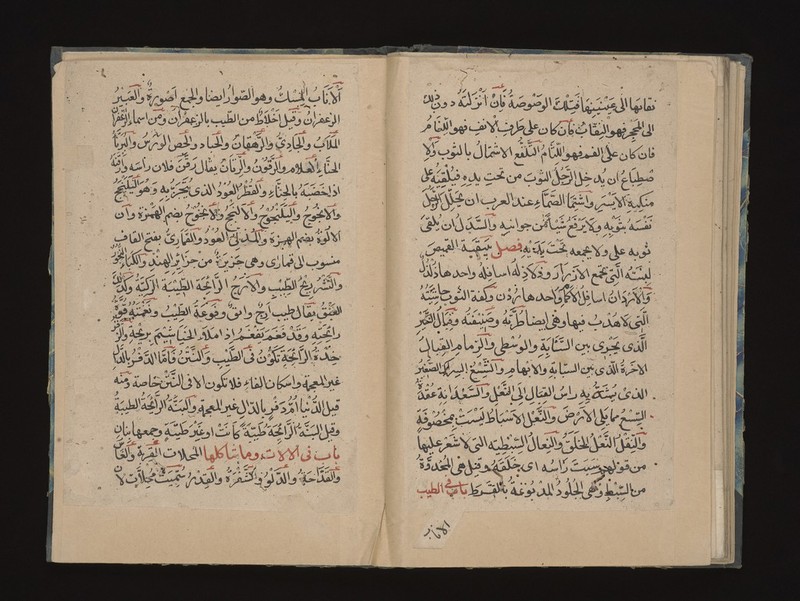 نقابها الى عينيها فتلك الوصوصة فان انزلته دون ذلك
الى المحجر فهو النقاب فان كان على طرف الانف فهو اللفام
فان كان على الفم فهو اللثام التلفع الاشتمال بالثوب والا
ضطباع ان يدخل الرجل الثوب من تحت يده فيلقيه على
منكبه الايسر واشتمال الصماء عند العرب ان يجلل الرجل
نفسه بثوبه ولا يرفع شيئا من جوانبه والسدل ان يلقى
ثوبه على ولا يجمعه تحت يديه فصل بنيقة القميص
لبنته التى تجمع الازرار وذلاذله اسافله واحدها ذلذل
والاردان اسافل الاكمام واحدها ردن وكفة الثوب حاشيته
التى لا هدب فيها وهى ايضا طرته وصنيفته وقبال النعل
الذى يجرى بين السبابة والوسطى والزمام القبال
الاخر الذى بين السبابة والابهام والشسع السير الصغير
الذى يشد به راس القبال الى النعل والسعدانة عقدة
الشسع مما يلى الارض والنعل الاسماط ليست بمخصوفة
والنقل النعل الخلق والنعال السبتية التى لا شعر عليها
من قولهم سبت راسه اى حلقه وقيل هى المحدوة
من السبت وهى الجلود المدبوغة بالقرظ باب فى الطيب
الاناب
الاناب المسك وهو الصوار ايضا والجمع اصورة والعبير
الزعفران وقيل اخلاط من الطيب بالزعفران ومن اسماء الزعفران
الملاب والجادى والريهقان والجساد والحص الورس واليرنأ
الحناء العلام والرقون والرقان يقال رقن فلان راسه وارقنه
اذا خضبه بالحناء والقطر العود الذى يتبخر به وهو اليلنجج
والالنجوج واليلنجوج والالنجج والانجوج بضم الهمزة وان
الالوة بضم الهمزة والمندلى العود والقمارى بفتح القاف
منسوب الى قمارى وهى جزيرة من جزاير الهند والكباء البخور
والنشر ريح الطيب والارج الرائحة الطيبة الزكية وكذلك
العبق يقال طيب ارج وعبق وفوعة الطيب وفغمته قوة
رائحته وقد فغم يفغم اذا ملأ الخياشيم بريحه والذفر
حدة الرائحة تكون فى الطيب والنتن فاما الدفر بالدال
غير المعجمة واسكان الفاء فلا تكون الا فى النتن خاصة ومنه
قيل للدنيا ام دفر بالدال غير المعجمة والبنة الرائحة الطيبة
وقيل البنة الرائحة طيبة كانت او غير طيبة وجمعها بنان
باب فى الالات وما شاكلها المحلات القربة والفاس
والقداحة والدلو والشفرة والقدر سميت محلات لان